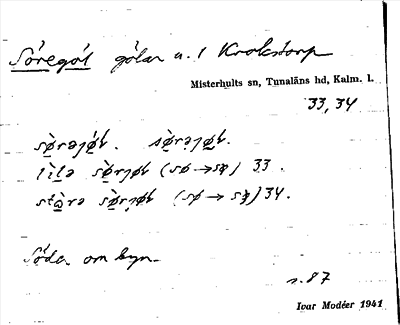 Söregöl gölar u. 1 Krokstorp
Misterhults sn, Tunaläns hd, Kalm. l.
33, 34
sø̀rəjø̀l. sø̀rəjø̀l.
lìlə sø̀rjøl (sø → sɟ) 33.
stòrə sø̀rjøl (sø → sɟ) 34.
Söder om byn.
s. 87
Ivar Modéer 1941